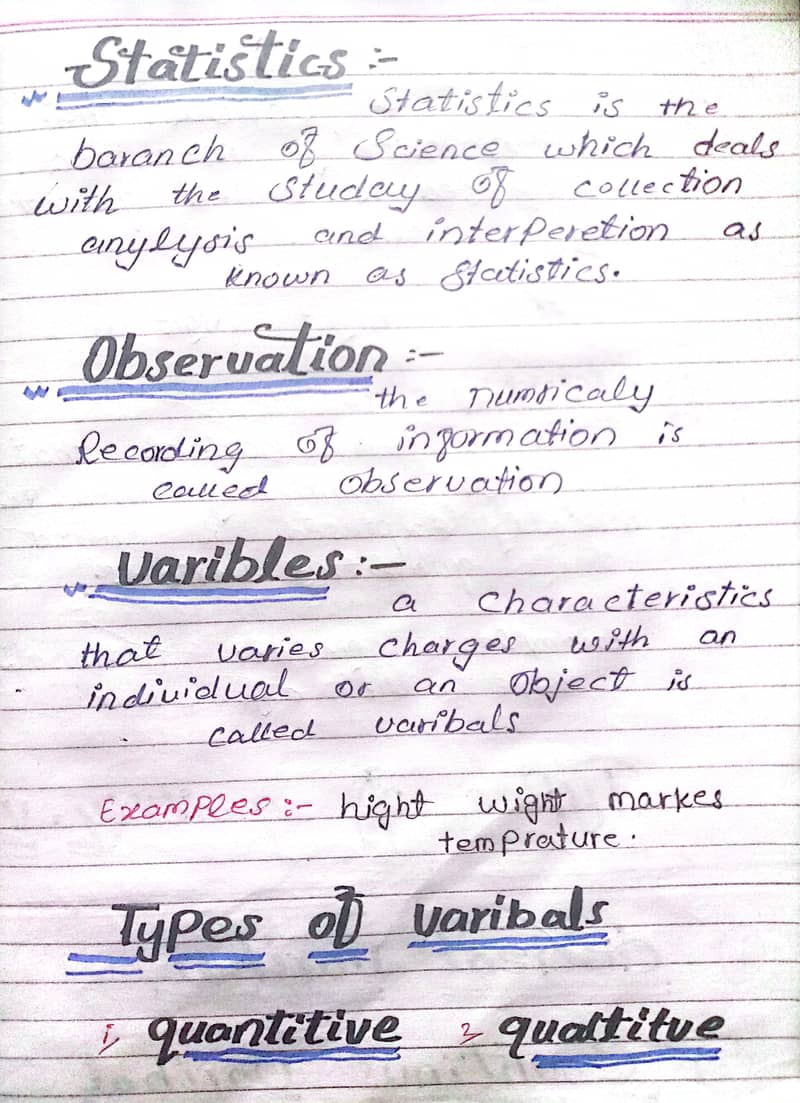 Statistics :-
Statistics is the
baranch of Science which deals
with the studay of collection
anylysis and interperetion as
known as statistics.
Observation :-
the numricaly
Recording of information is
called observation
Varibles :-
a characteristics
that varies charges with an
individual or an object is
called varibals
Examples :- hight wight markes
temprature.
Types of varibals
1, quantitive 2 quattitve